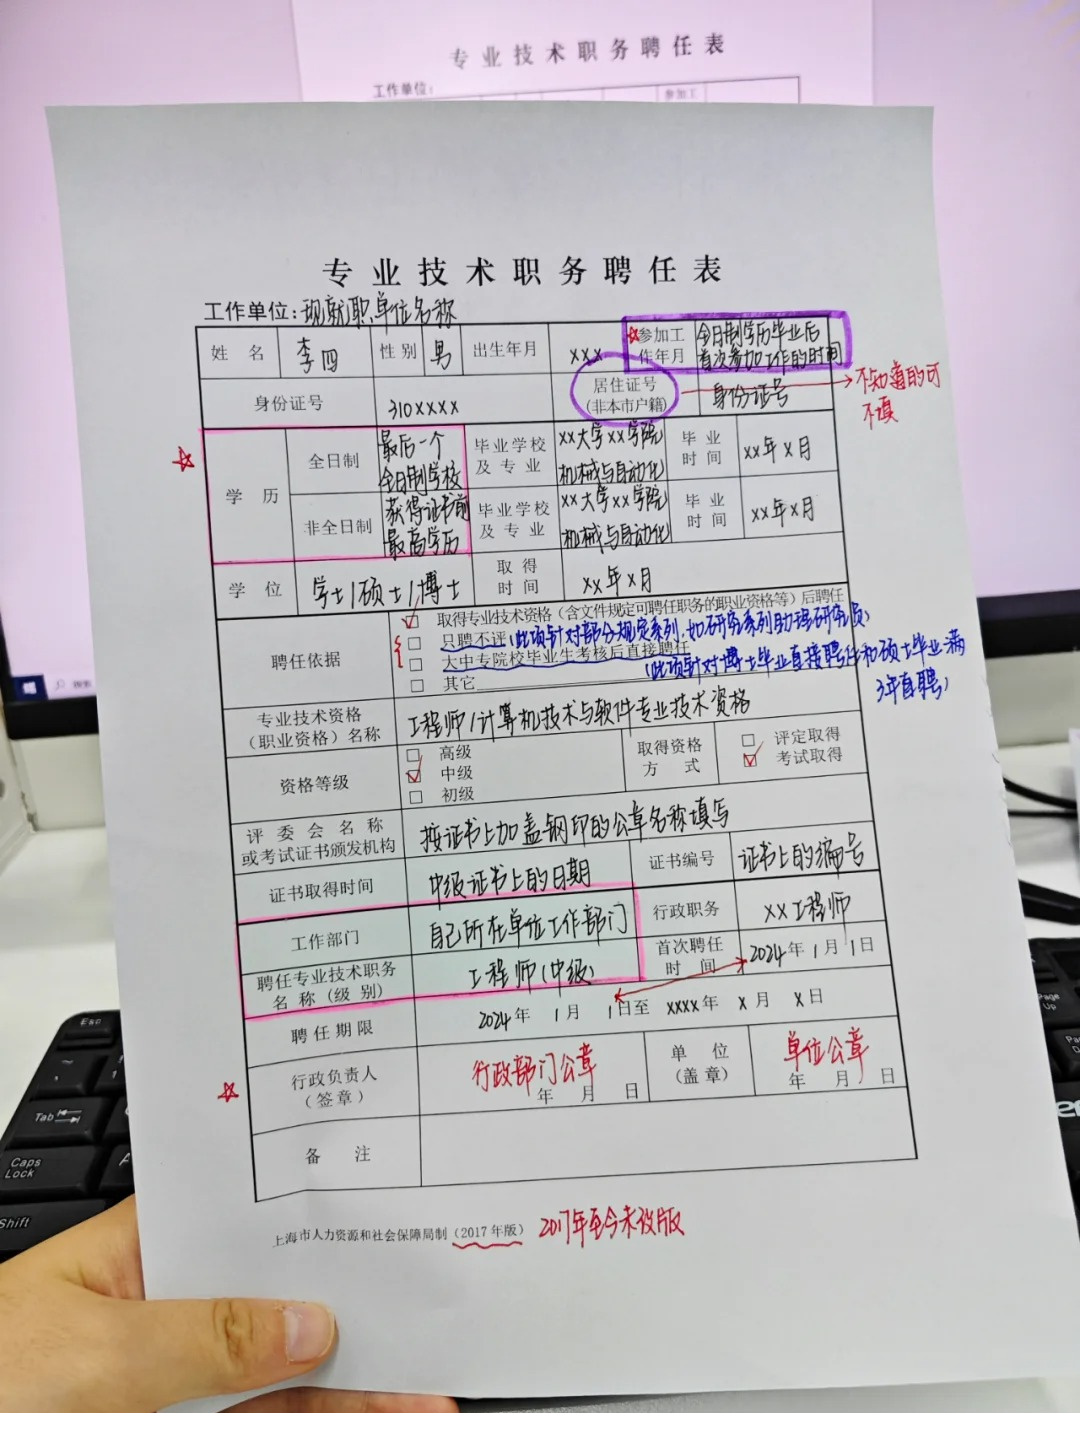 专业技术职务聘任表
工作单位：
参加工
专业技术职务聘任表
工作单位：现就职单位名称
姓 名 李四 性别 男 出生年月 xxx ☆参加工作年月 全日制学历毕业后首次参加工作的时间
身份证号 310xxxx 居住证号（非本市户籍） 身份证号 不知道的可不填
学 历 全日制 最后一个全日制学校 毕业学校及专业 xx大学xx学院机械与自动化 毕业时间 xx年x月
非全日制 获得证书前最高学历 毕业学校及专业 xx大学xx学院机械与自动化 毕业时间 xx年x月
学 位 学士/硕士/博士 取得时间 xx年x月
聘任依据 取得专业技术资格（含文件规定可聘任职务的职业资格等）后聘任
只聘不评（此项针对部分规定系列，如研究系列助理研究员）
大中专院校毕业生考核后直接聘任
（此项针对博士毕业直接聘任和硕士毕业满3年直聘）
其它
专业技术资格（职业资格）名称 工程师/计算机技术与软件专业技术资格
资格等级 高级 中级 初级 取得资格方式 评定取得 考试取得
评委会名称或考试证书颁发机构 按证书上加盖钢印的公章名称填写
证书取得时间 中级证书上的日期 证书编号 证书上的编号
工作部门 自己所在单位工作部门 行政职务 xx工程师
聘任专业技术职务名称（级别） 工程师（中级） 首次聘任时间 2024年1月1日
聘任期限 2024年 1月 1日至 xxxx年 x月 x日
行政负责人（签章） 行政部门公章 年 月 日 单 位（盖章） 单位公章 年 月 日
备 注
上海市人力资源和社会保障局制（2017年版） 2017年至今未改版
Esc
Tab
Caps Lock
Shift
Page Up